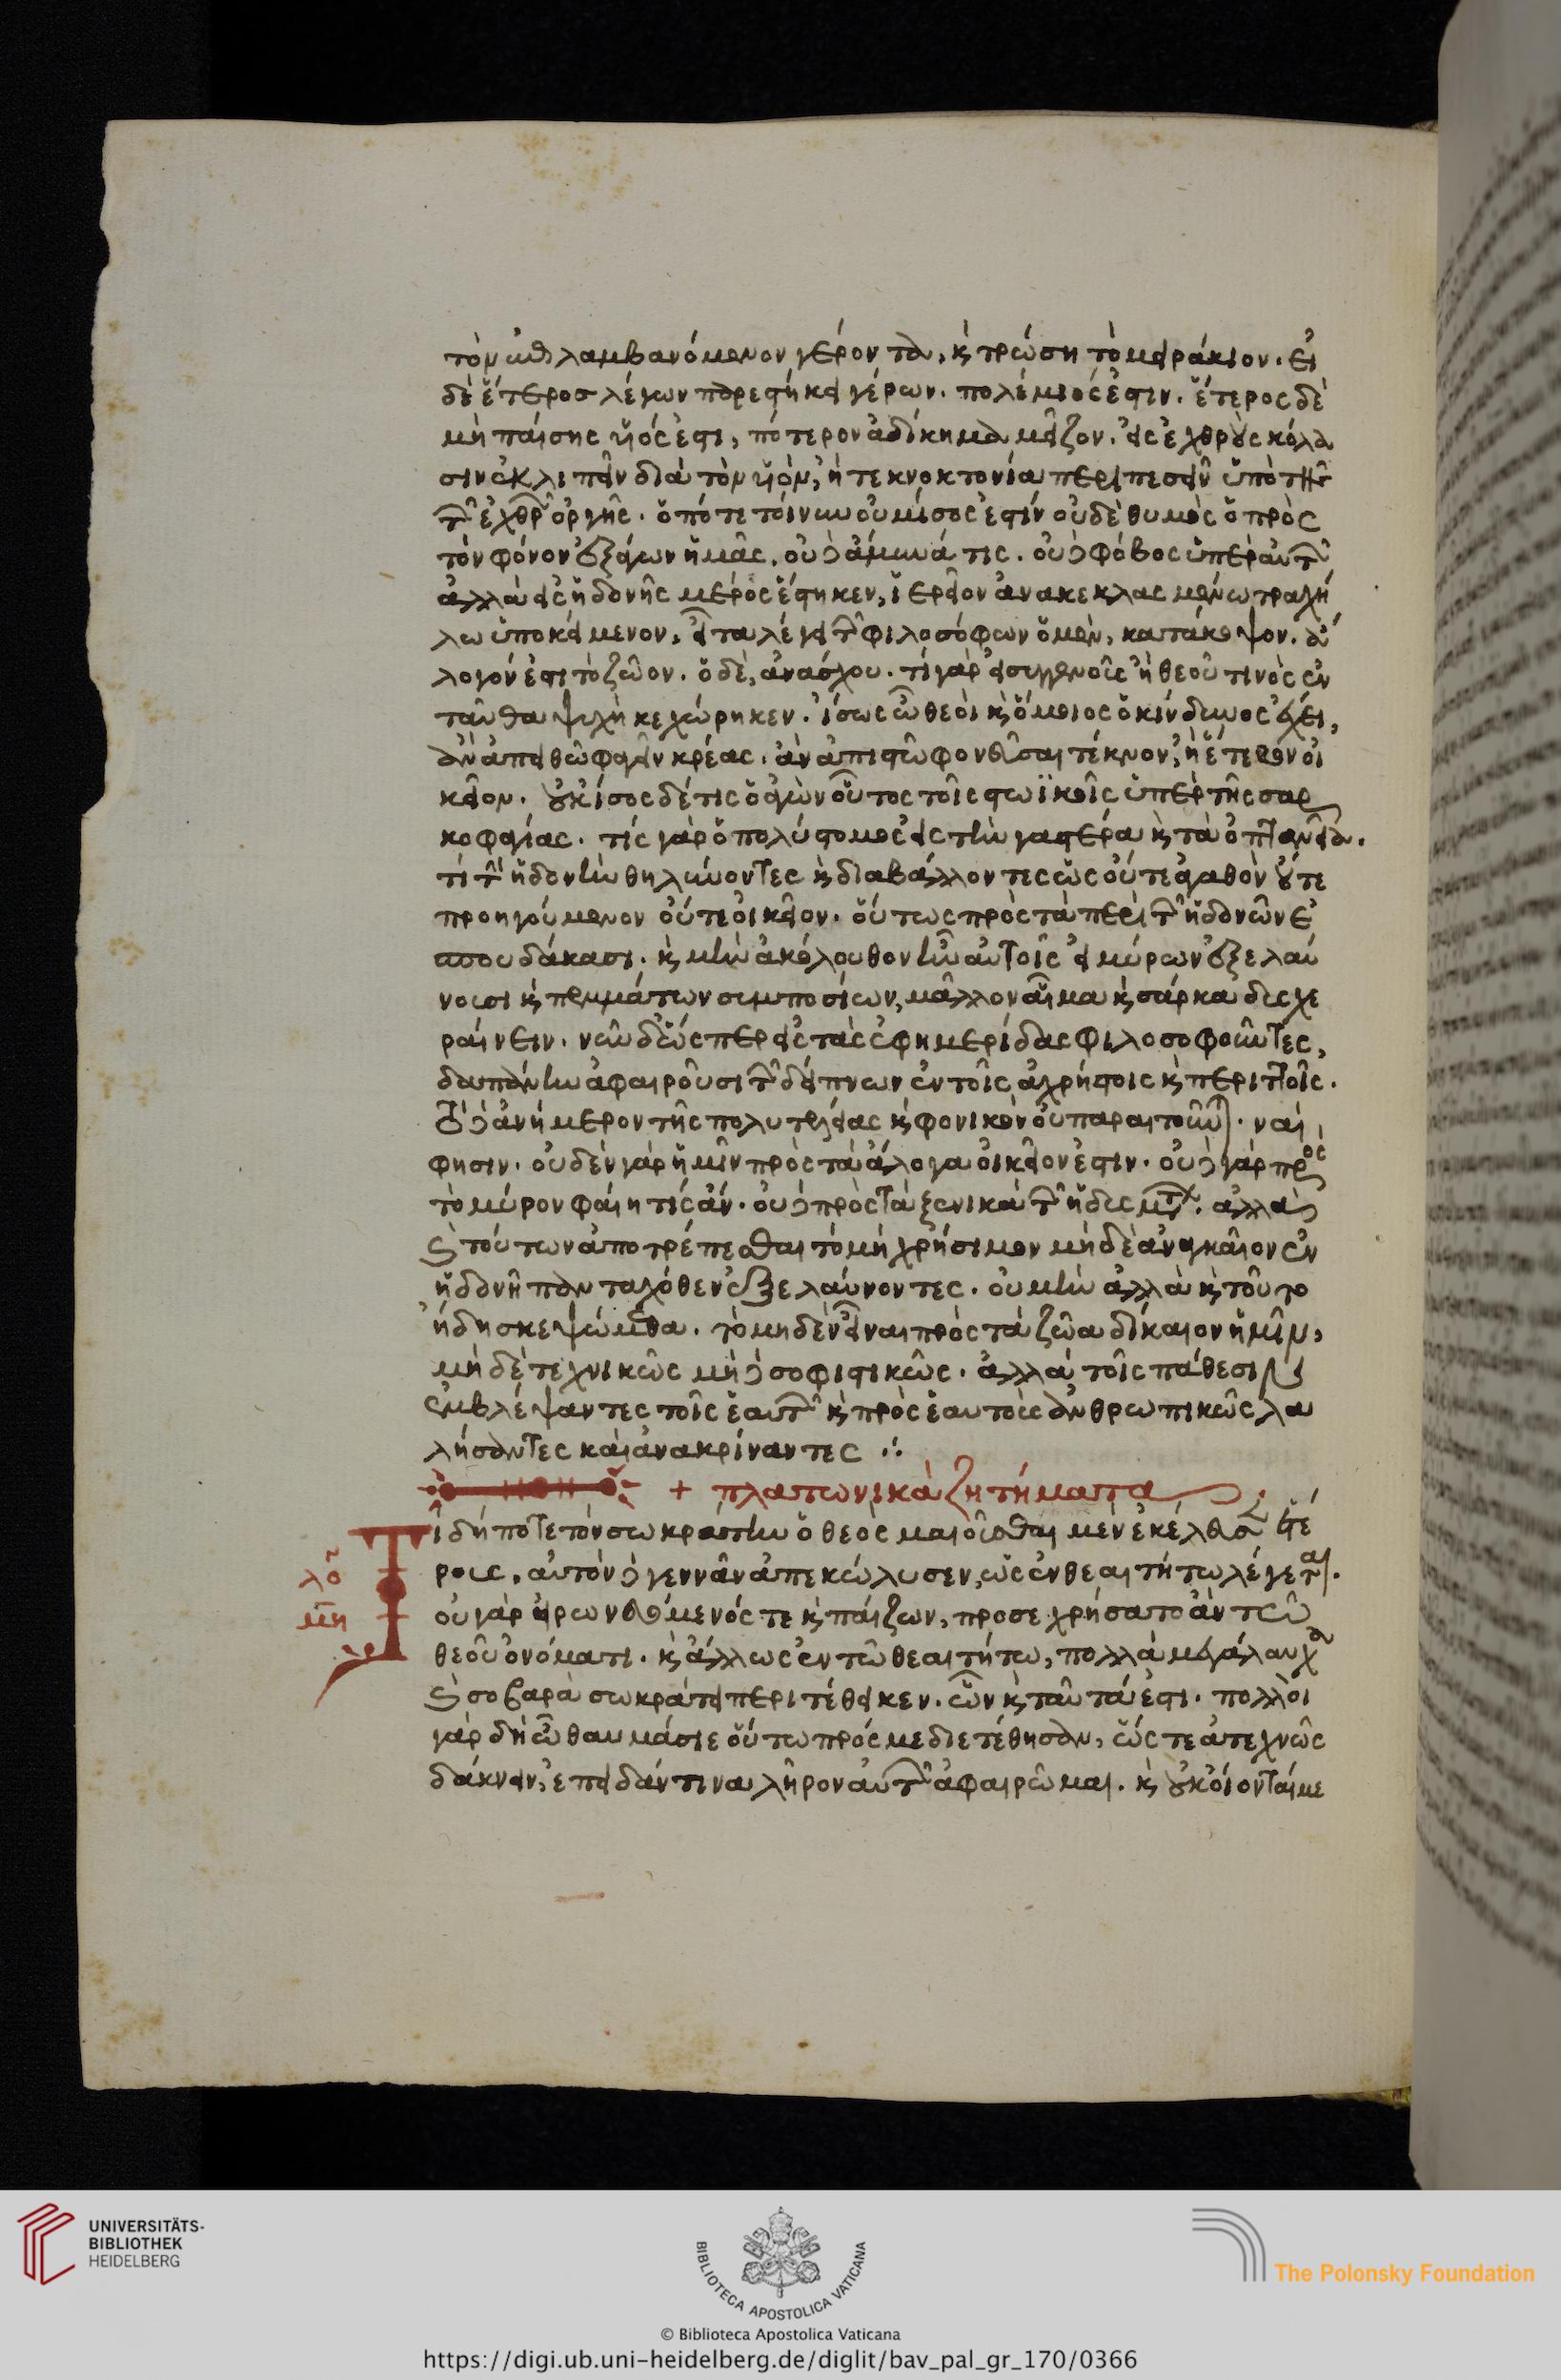 τὸν ἐπιλαμβανόμενον γέροντα, κ̀ τρώση τὸ μειράκιον. εἰ
δὲ ἕτερος λέγων παρεστήκει γέρων. πολέμιός ἐστιν. ἕτερος δὲ
μὴ παίσης υἱός ἐστι, πότερον ἀδίκημα μεῖζον. εἰς ἐχθροὺς κόλα
σιν ἐκλιπεῖν διὰ τὸν υἱὸν, ἢ τεκνοκτονία περιπεσεῖν ὑπὸ τῆς
τ῀ ἐχθρ῀ ὀργῆς. ὁπότε τοίνυν οὐ μίσος ἐστίν οὐδὲ θυμὸς ὁ πρὸς
τὸν φόνον ἐξάγων ἡμᾶς, οὐδ' ἄμυνά τις. οὐδὲ φόβος ὑπὲρ αὐτ῀
ἀλλὰ εἰς ἡδονῆς μέρος ἕστηκεν, ἱερεῖον ἀνακεκλασμένω τραχή
λω ὑποκείμενον, εἶτα λέγει τ῀ φιλοσόφων ὁ μὲν, κατάκοψον. ἄ
λογόν ἐστι τὸ ζῶον. ὁ δὲ, ἀνάσχου. τί γὰρ εἰ συγγενοῦς ἢ θεοῦ τινὸς ἐν
ταῦθα ψυχὴ κεχώρηκεν. ἴσως ὦ θεοὶ κ̀ ὅμοιος ὁ κίνδυνος ἐκεῖ,
ἂν ἀπειθῶ φαγεῖν κρέας. ἂν ἀπιστῶ φονεῦσαι τέκνον, ἢ ἕτερον οἰ
κεῖον. οὐκ ἴσος δέ τις ὁ ἀγὼν οὗτος τοῖς στωϊκοῖς ὑπὲρ τῆς σαρ
κοφαγίας. τίς γὰρ ὁ πολύς τόνος εἰς τὴν γαστέρα κ̀ τὰ ὀπτανεῖα.
τί τ῀ ἡδονὴν θηλύνοντες κ̀ διαβάλλοντες ὡς οὔτε ἀγαθὸν οὔτε
προηγούμενον οὔτε οἰκεῖον. οὕτως πρὸς τὰ περὶ τ῀ ἡδονῶν ἐ
σπουδάκασι. κ̀ μὴν ἀκόλουθον ἦν αὐτοῖς εἰ μύρον ἐξελαύ
νουσι κ̀ πεμμάτων συμποσίων, μᾶλλον αἷμα κ̀ σάρκα δυσχε
ραίνειν. νῦν δ' ὥσπερ εἰς τὰς ἐφημερίδας φιλοσοφοῦντες,
δαπάνην ἀφαιροῦσι τ῀ δείπνων ἐν τοῖς ἀχρήστοις κ̀ περιττοῖς.
τὸ δὲ ἀνήμερον τῆς πολυτελείας κ̀ φονικὸν οὐ παραιτοῦνται. ναί
φησιν. οὐδὲν γὰρ ἡμῖν πρὸς τὰ ἄλογα οἰκεῖον ἐστιν. οὐδὲ γὰρ πρὸς
τὸ μύρον φαίη τίς ἄν. οὐδὲ πρὸς τὰ ξενικὰ τ῀ ἡδυσμάτ. ἀλλὰ
κ̀ τούτων ἀποτρέπεσθαι τὸ μὴ χρήσιμον μηδὲ ἀναγκαῖον ἐν
ἡδονῆ πανταχόθεν ἐξελαύνοντες. οὐ μὴν ἀλλὰ κ̀ τοῦτο
ἤδη σκεψώμεθα. τὸ μηδὲν εἶναι πρὸς τὰ ζῶα δίκαιον ἡμῖν,
μὴ δὲ τεχνικῶς μὴ δὲ σοφιστικῶς. ἀλλὰ τοῖς πάθεσιν
ἐμβλέψαντες τοῖς ἑαυτ῀ κ̀ πρὸς ἑαυτοὺς ἀνθρωπικῶς λα
λήσαντες καὶ ἀνακρίναντες ∴
+ πλατωνικὰ ζητήματα
Τί δήποτε τὸν σωκράτην ὁ θεὸς μαιοῦσθαι μὲν ἐκέλευσεν ἑτέ
λοτ
ρους, αὐτὸν δὲ γεννᾶν ἀπεκώλυσεν, ὡς ἐν θεαιτήτω λέγεται.
μη
οὐ γὰρ εἰρωνευόμενός τε κ̀ παίζων, προσεχρήσατο ἂν τῶ
θεοῦ ὀνόματι. κ̀ ἄλλως ἐν τῶ θεαιτήτω, πολλὰ μεγάλαυχα
κ̀ σοβαρὰ σωκράτει περιτέθεικεν. ὧν κ̀ ταῦτά ἐστι. πολλοὶ
γὰρ δὴ ὦ θαυμάσιε οὕτω πρός με διετέθησαν, ὥστε ἀτεχνῶς
δάκνειν, ἐπειδάν τινα λῆρον αὐτ῀ ἀφαιρῶμαι. κ̀ οὐκ οἴονταί με
UNIVERSITÄTS-
BIBLIOTHEK
HEIDELBERG
BIBLIOTECA APOSTOLICA VATICANA
The Polonsky Foundation
© Biblioteca Apostolica Vaticana
https://digi.ub.uni-heidelberg.de/diglit/bav_pal_gr_170/0366